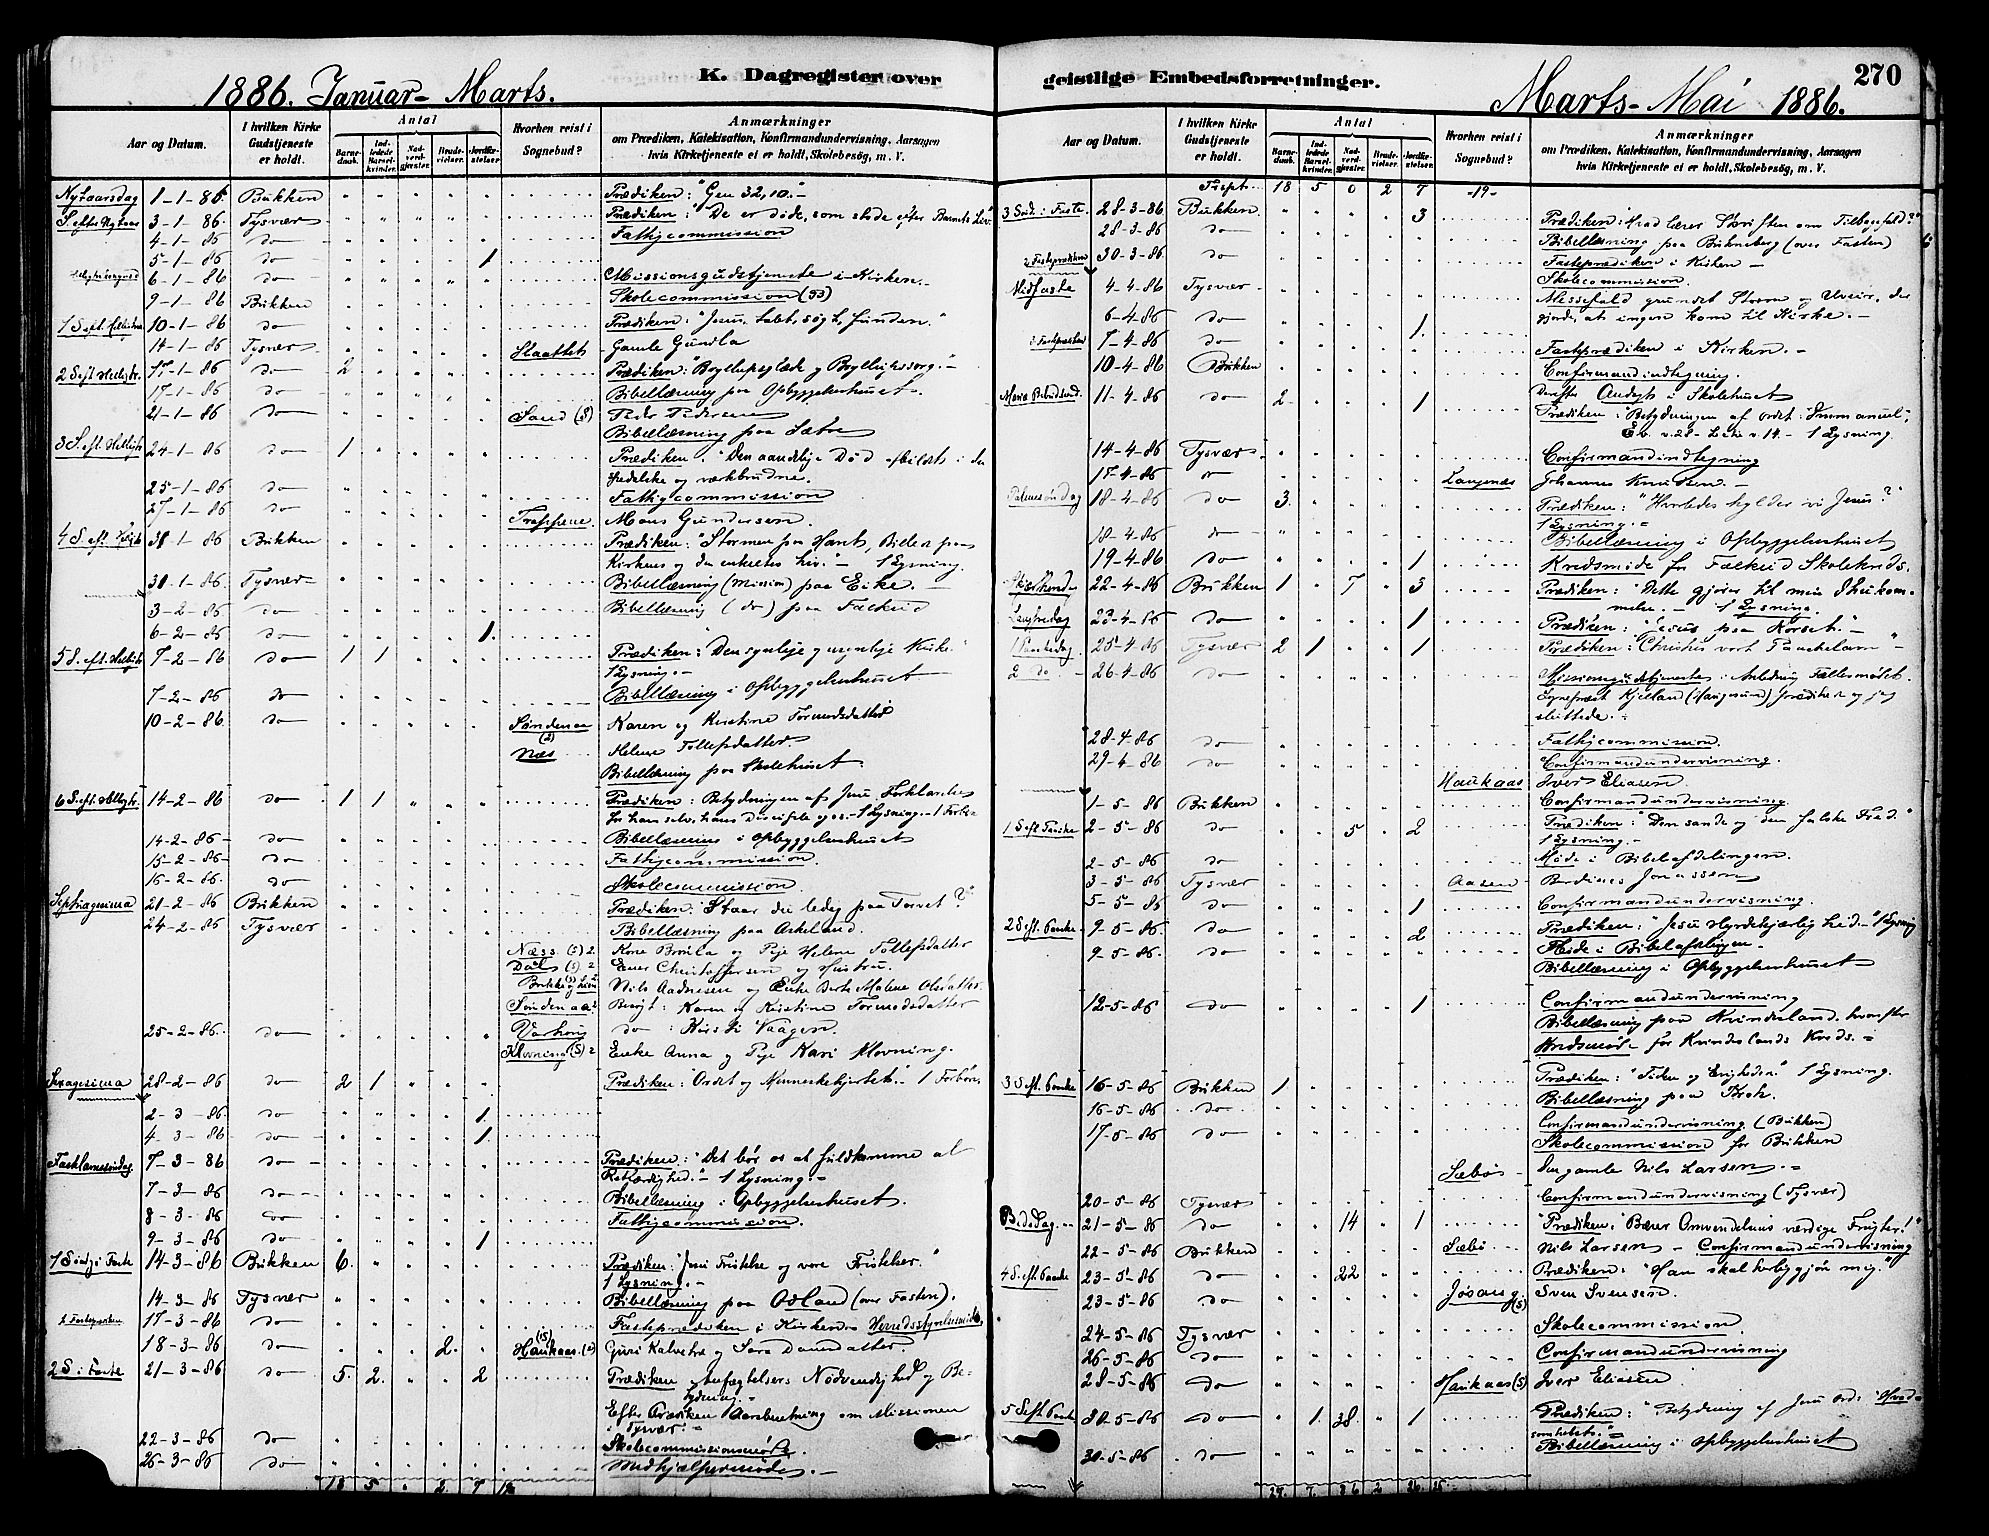 K. Dagregister over geistlige Embedsforretninger.
270
1886. Januar - Marts.
Marts - Mai 1886.
Aar og Datum.
I hvilken Kirke Gudstjeneste er holdt.
Antal
Barne-daab.
Ind-ledede Barsel-kvinder.
Nad-verd-gjester.
Brude-vielser.
Jordfæ-stelser.
Hvorhen reist i Sognebud?
Anmærkninger
om Prædiken, Katekisation, Konfirmandundervisning, Aarsagen
hvis Kirketjeneste ei er holdt, Skolebesøg, m. V.
Nytaarsdag 1-1-86 Bukken Prædiken: "Gen 32,10."
S. efter Nytaar 3-1-86. Tysvær Prædiken: "De ere døde, som stode efter Barnets Liv."
4-1-86 do Fattigcommission
5-1-86 do 1
6-1-86 do Missionsgudstjeneste i Kirken.
9-1-86 Bukken Skolecommission
10-1-86 do Prædiken: "Jesus, tabt, søgt, funden."
14-1-86 Tysvær Slaattet Gamle Gunla
17-1-86 do 2 Prædiken: "Bryllupsglæde og Bryllupssorg."
17-1-86 do Bibellæsning paa Opbyggelseshuset.
21-1-86 do Sand (S) Peder Pedersen
Bibellæsning paa Sætre
24-1-86 do 1 Prædiken: "Den aandelige Død afbildet i den
spedalske og værkbrudne.
25-1-86 do Fattigcommission
27-1-86 do Mons Gundersen.
31-1-86 Bukken Prædiken: "Stormen paa Havet, Billede paa
Kirkens og den enkeltes Liv." - 1 Lysning.
30-1-86 Tysvær Bibellæsning (Mission) paa Eike.
3-2-86 do Bibellæsning (do) paa Falkeid
6-2-86 do 1.
7-2-86 do 1 1 Prædiken: Den synlige og usynlige Kirke
1 Lysning.
7-2-86 do Bibellæsning i Opbyggelseshuset
10-2-86 do Søndenaa (2) Karen og Kristine Tormodsdatter
Næs Helene Tollefsdatter.
Bibellæsning paa Skolehuset.
14-2-86 do 1 1 Prædiken: Betydningen af Jesu Forklarelse
for ham selv, hans Disciple og os. - 1 Lysning. - 1 Forbøn
14-2-86 do Bibellæsning i Opbyggelseshuset
15-2-86 do Fattigcommission.
16-2-86. do Skolecommission.
Septuagesima 21-2-86 Bukken Prædiken: "Staar du ledig paa Torvet?"
24-2-86 Tysvær Bibellæsning paa Askeland.
Næss (S) 2 Kone Brøla og Pige Helene Tollefsdatter
Dal (S) 2 Einer Christoffersen og Hustru.
Nils Aadnesen og Enke Berte Malene Olsdatter.
Søndenaa Besøgt: Karen og Kristine Tormodsdatter
25-2-86. do Varhoug do : Kirsti Vaagen.
Kløvning (S) 2 Enke Anna og Pige Kari Kløvning.
Sexagesima 28-2-86 do 2 1 Prædiken: "Ordet og Menneskehjertet." 1 Forbøn
2-3-86 do 1.
4-3-86 do 1
Fastelavnssøndag 7-3-86 do Prædiken: "Det bør os at fuldkomme al
Retfærdighed." - 1 Lysning.
7-3-86 do Bibellæsning i Opbyggelseshuset.
8-3-86 do Fattigcommission.
9-3-86 do 1
1 Sønd. i Faste 14-3-86 Bukken 6. Prædiken: "Jesu Fristelse og vore Fristelser."
1 Lysning.
14-3-86 Tysvær Bibellæsning paa Odland (over Fasten).
17-3-86 do Fasteprædiken i Kirken. Herredsstyrelsesmøde
18-3-86 do 2. Haukaas Guri Kalvetræ og Sara Danieldatter.
2 S. i Faste 21-3-86 do 5. 2. 2 Prædiken: Anfægtelsers Nødvendighed og Be-
tydning.
Efter Prædiken Aarsberetning om Missionen
i Tysvær.
22-3-86 do Skolecommissionsmøde.
26-3-86 do Medhjælpermøde.
18 5 2. 7 19
Tr.spt. 18 5 0 2 7 -19-
3 Sønd. i Faste 28-3-86 Bukken 3 Prædiken: Hvad lærer Skriften om Tilbagefald?
28-3-86 do Bibellæsning paa Bukneberg (over Fasten)
2 Fasteprædiken 30-3-86 do Fasteprædiken i Kirken
Skolecommission
Midfaste 4-4-86 Tysvær Messefald grundet Storm og Uveir, der
6-4-86 do 1. gjorde, at ingen kom til Kirke.
7-4-86 do Fasteprædiken i Kirken.
10-4-86 Bukken Confirmandindtegning.
Mariæ Bebudelsesd. 11-4-86 do 2 1 Derefter Andagt i Skolehuset
Prædiken: Betydningen af Ordet: Immanuel.
1 Lysning.
14-4-86 Tysvær Confirmandindtegning
17-4-86 do Langenæs Johannes Knudsen.
Palmesøndag 18-4-86 do 3. Prædiken: "Hvorledes hylder vi Jesus?"
1 Lysning.
18-4-86 do Bibellæsning i Opbyggelseshuset
19-4-86 do 1 Kredsmøde for Falkeid Skolekreds.
Skjærthorsdag 22-4-86 Bukken 1 7 3 Prædiken: "Dette gjører til min Ihukom-
melse. - 1 Lysning.
Langfredag 23-4-86 do 1 Prædiken: "Jesus paa Korset."
1 Paaskedag 25-4-86 Tysvær 2 1 1 Prædiken: "Christus vort Paaskelam"
2 do 26-4-86 do Missionsgudstjeneste i Anledning Fællesmødet.
Sognepræst Kjelland (Haugesund) prædikede og jeg
sluttede.
28-4-86 do Fattigcommission.
29-4-86 do Confirmandundervisning.
Haukaas Iver Eliasen
1-5-86 Bukken Confirmandundervisning.
1 S. eft. Paaske 2-5-86 do 5 2 Prædiken: "Den sande og den falske Fred."
1 Lysning.
2-5-86 do Møde i Bibelafdelingen.
3-5-86 Tysvær Aasen Berdines Jonassen
5-5-86 do 1 Confirmandundervisning.
2 S. eft. Paaske 9-5-86. do 2 Prædiken: "Jesu Hyrdekjærlighed." 1 Lysning
9-5-86. do Møde i Bibelafdelingen
Bibellæsning i Opbyggelseshuset
12-5-86 do 1 Confirmandundervisning
Bibellæsning paa Kvindesland, hvorefter
Kredsmøde for Kvindeslands Kreds.
3 S. eft. Paaske 16-5-86 Bukken 1 Prædiken: "Tiden og Evigheden" 1 Lysning.
16-5-86 do Bibellæsning paa Krok.
17-5-86 do Confirmandundervisning (Bukken)
Skolecommission for Bukken
Sæbø Den gamle Nils Larsen.
20-5-86 Tysvær Confirmandundervisning (Tysvær)
Bededag. 21-5-86 do 14 1 "Prædiken: "Bærer Omvendelsens værdige Frugter!"
22-5-86 Bukken Sæbø Nils Larsen - Confirmandundervisning
4 S. eft. Paaske 23-5-86 do 22 Prædiken: "Han skal herliggjøre mig."
23-5-86 do Jøsang (S) Sven Svensen.
24-5-86 Tysvær Skolecommission.
26-5-86 do Confirmandundervisning
28-5-86 do Haukaas (S) Iver Eliasen
5 S. eft. Paaske 30-5-86 do 1. 38. 1 Prædiken: "Betydning af Jesu Ord: Hvad
30-5-86 do Bibellæsning i Opbyggelseshuset
29. 7. 86 2 26. 25.